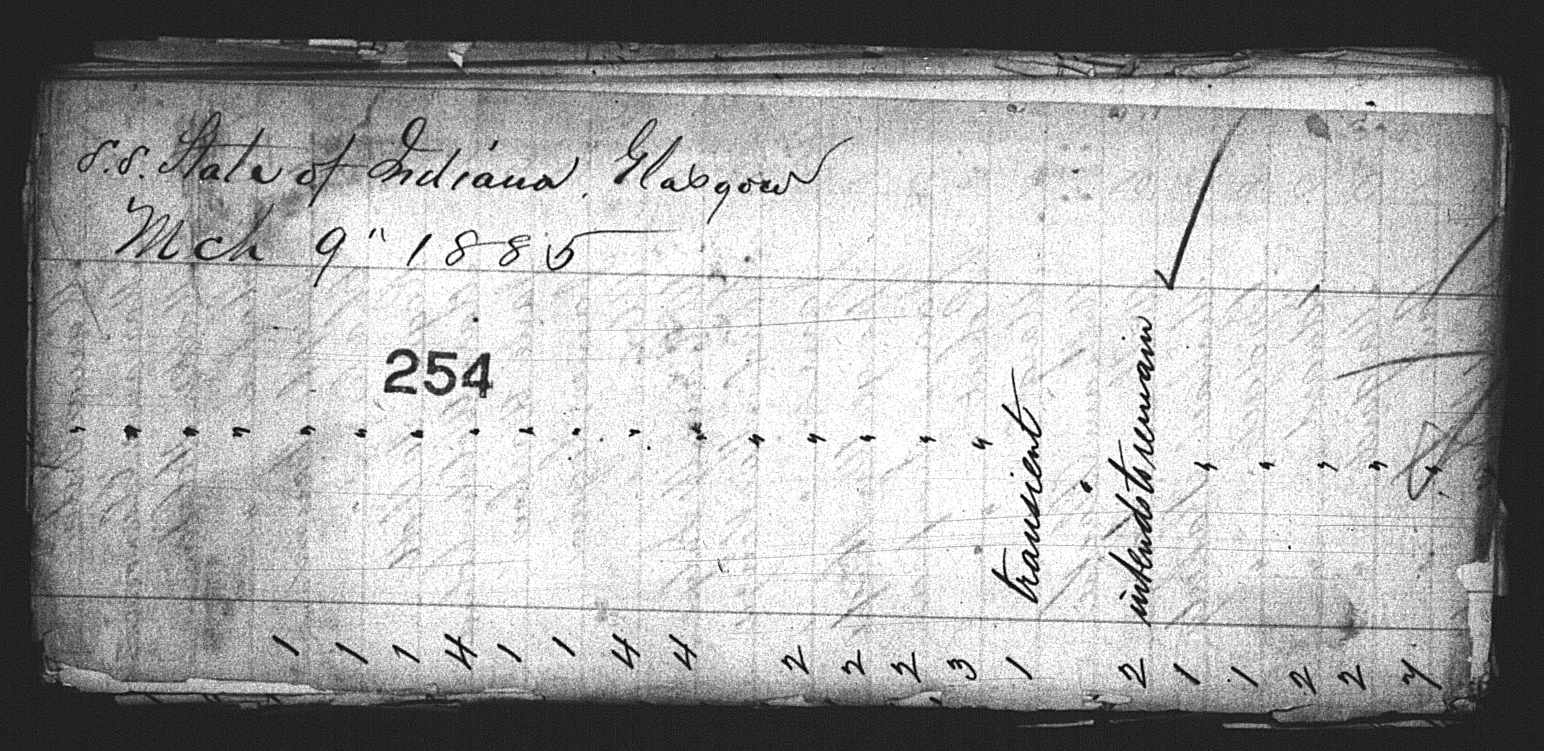 S.S. State of Indiana, Glasgow
Mch 9" 1885
254
" " " " " " " " " " " " " " " " "
transient
intends to remain
" " " " "
1 1 1 4 1 1 4 4 2 2 2 3 1 2 1 1 2 2